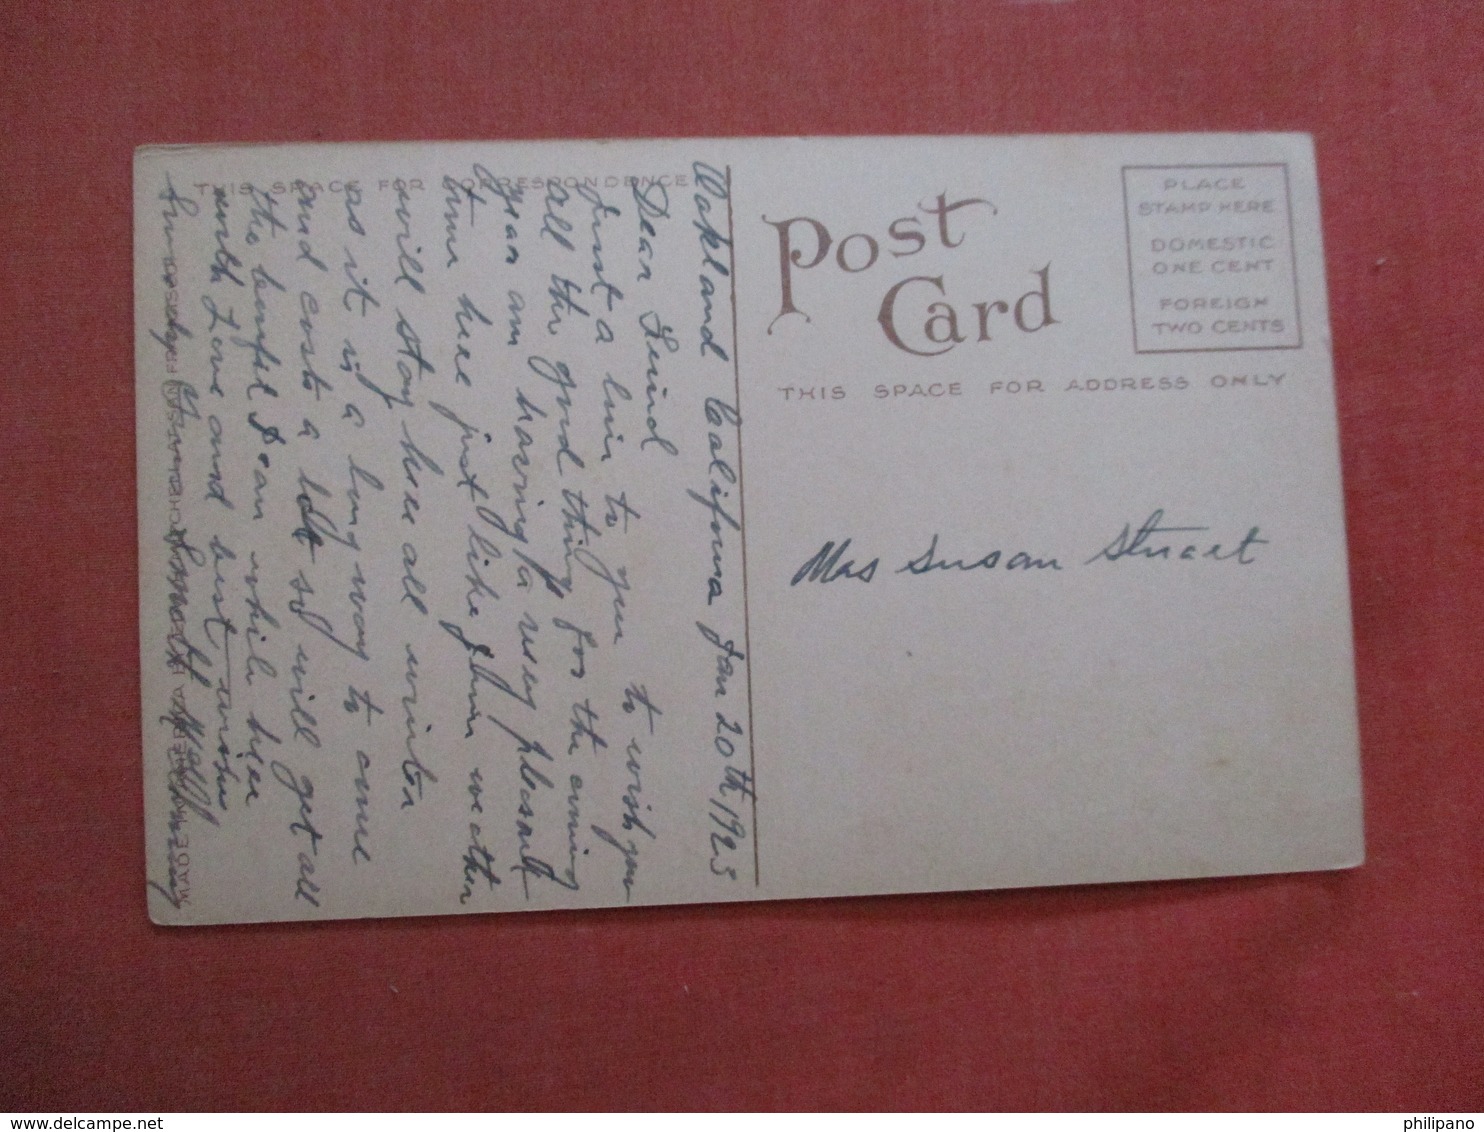 THIS SPACE FOR CORRESPONDENCE
Oakland California Jan 20th 1923
Dear Friend
Just a line to you to wish you
all the good things for the coming
year am having a very pleasant
time here just like June weather
will stay here all winter
as it is a long way to come
and costs a lot so will get all
the benefit Dean while here
with Love and best wishes
Post
Card
PLACE
STAMP HERE
DOMESTIC
ONE CENT
FOREIGN
TWO CENTS
THIS SPACE FOR ADDRESS ONLY
Mrs Susan Stuart
philipano